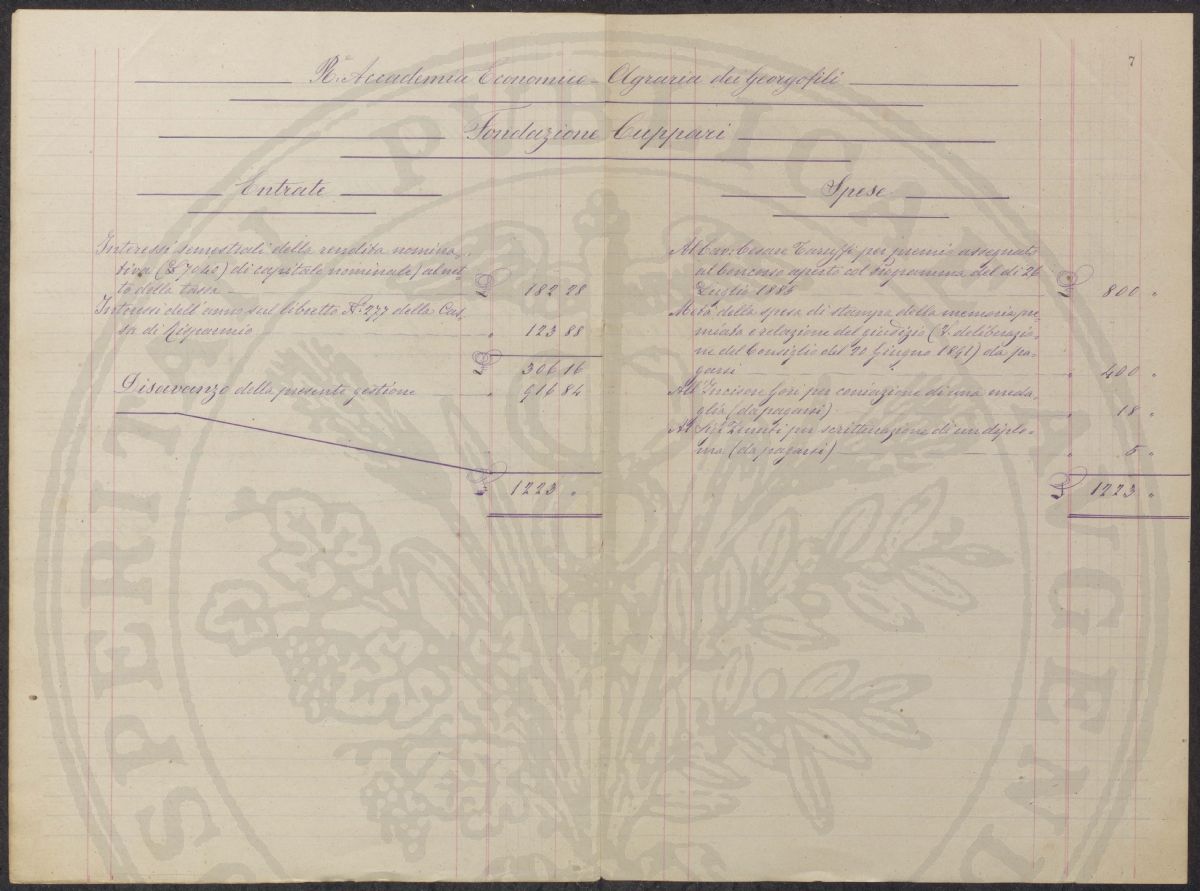 7
R.ª Accademia Economico-Agraria dei Georgofili
Fondazione Cuppari
Entrate
Interessi semestrali della rendita nomina-
tiva (£ 7040) di capitale nominale) al net-
to della tassa £ 182 28
Interessi dell'anno sul libretto N.º 277 della Cas-
sa di Risparmio " 123 88
£ 306 16
Disavanzo della presente gestione " 916 84
£ 1223 "
Spese
Al Cav: Cesare Taruffi per premio assegnato
al Concorso aperto col programma del dì 26
Luglio 1885 £ 800 "
Metà della spesa di stampa della memoria pre-
miata e relazione del giudizio (V. deliberazio-
ne del Consiglio del 20 Giugno 1891) da pa-
garsi " 400 "
All'Incisore Gori per coniazione di una meda-
glia (da pagarsi) " 18 "
Al Sig. per scritturazione di un diplo-
ma (da pagarsi) " 5 "
£ 1223 "
PROSPERITATI PUBLICAE AUGENDAE